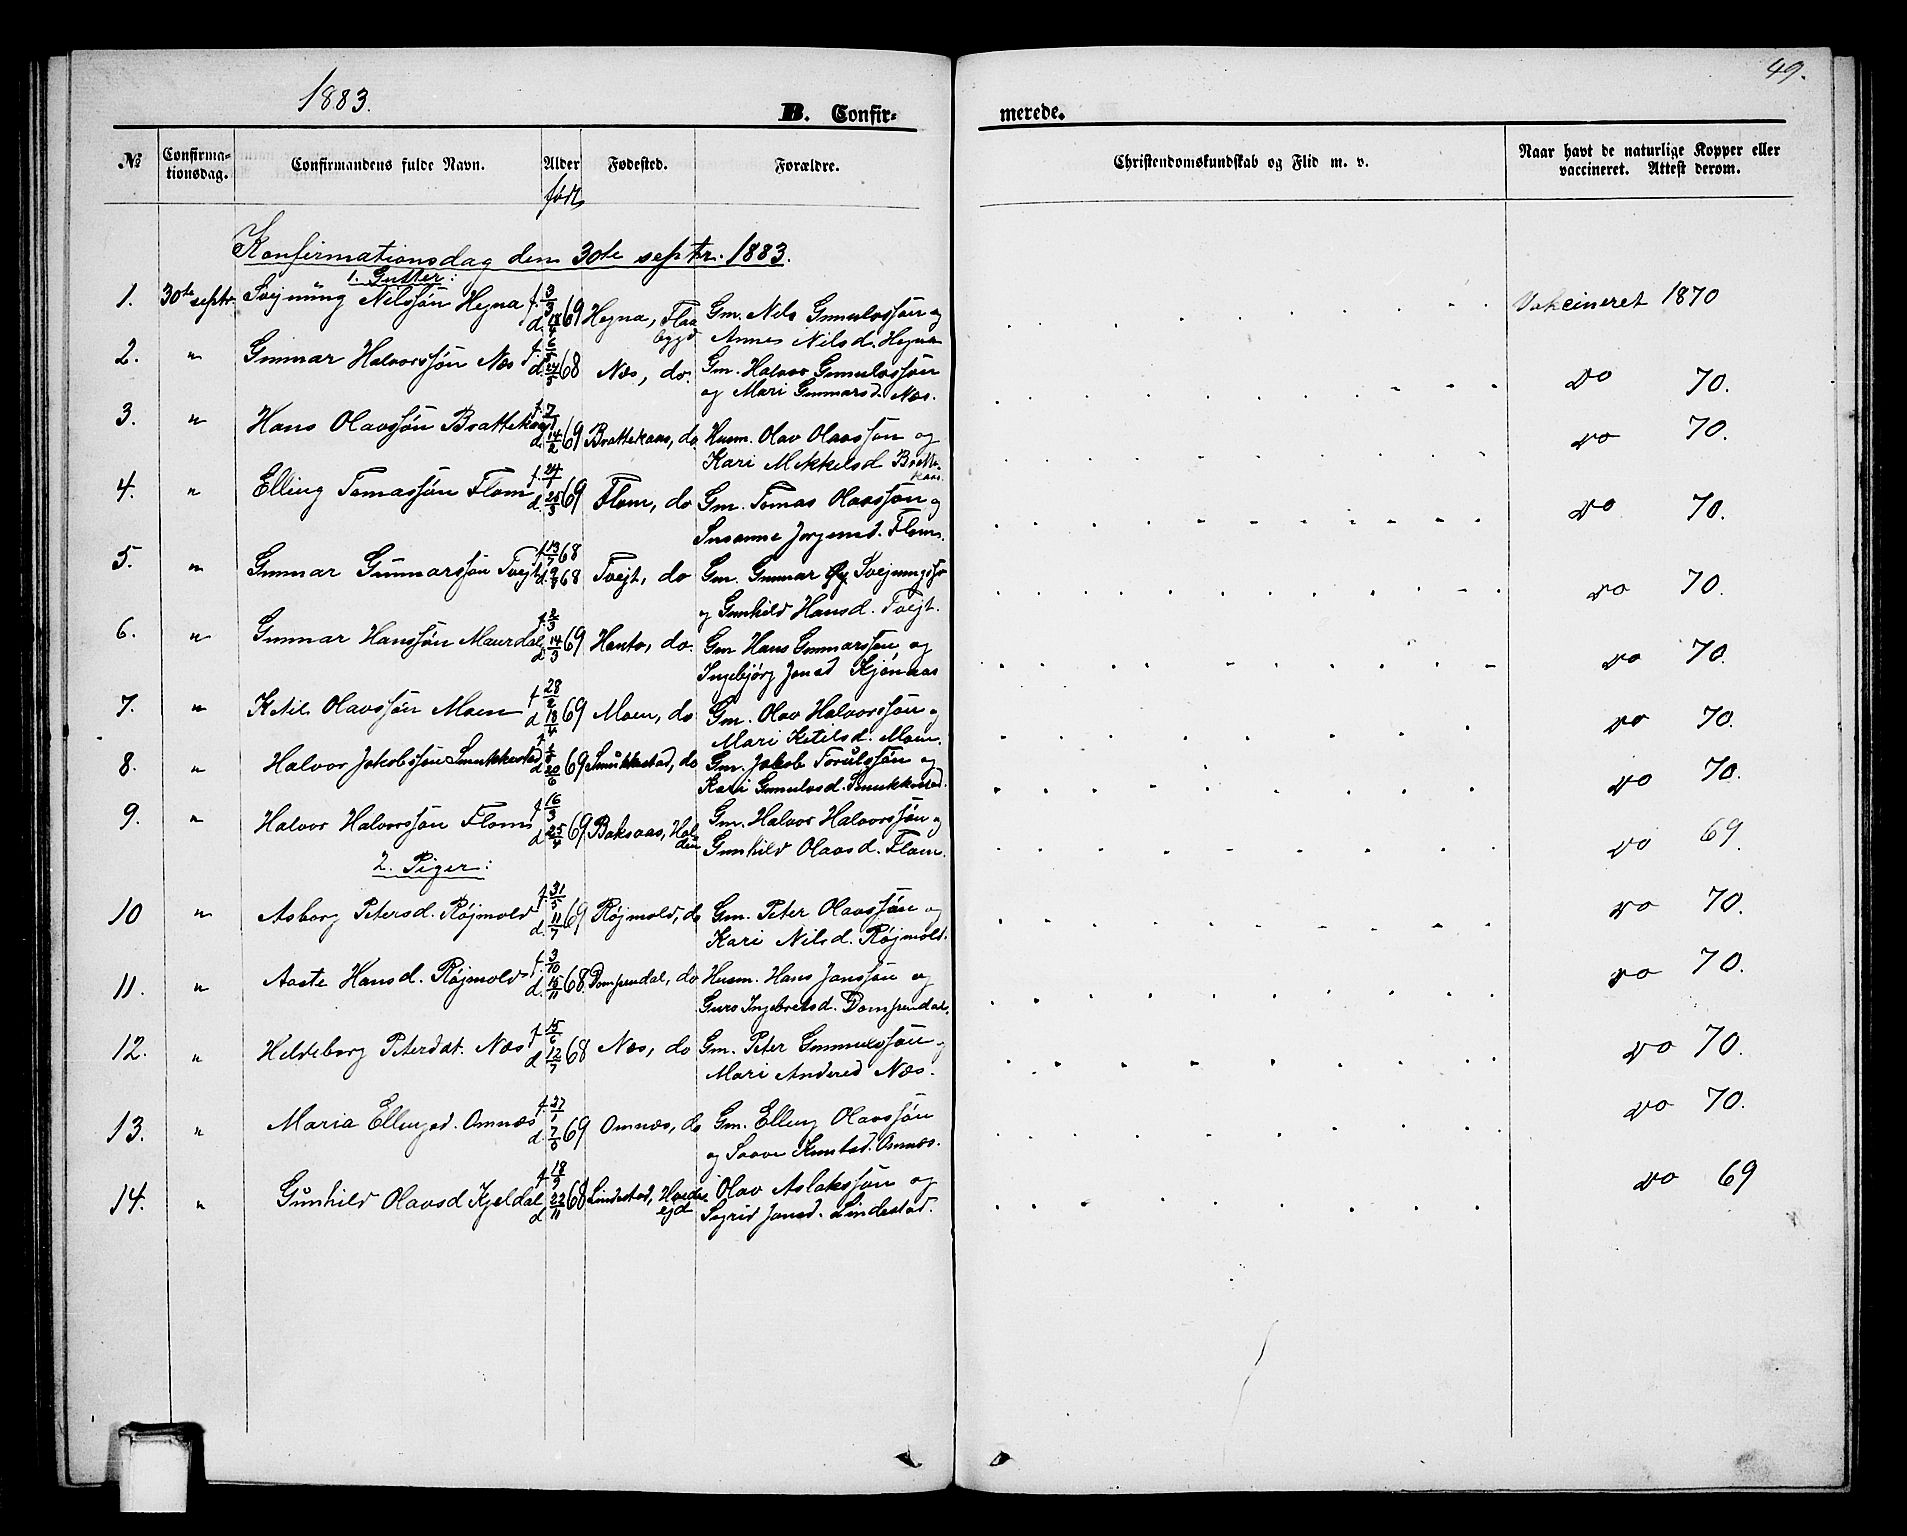 1883.
49.
B. Confir-
merede.
№
Confirma-
tionsdag.
Confirmandens fulde Navn.
Alder
født
Fødested.
Forældre.
Christendomskundskab og Flid m. v.
Naar havt de naturlige Kopper eller
vaccineret. Attest derom.
Konfirmationsdag den 30te septr. 1883.
1. Gutter:
1. 30te septr. Svejnung Nilssøn Hegna f. 3/3 d. 18/4 69 Hegna, Flaa
bygd
Gm. Nils Gunulvssøn og
Anne Nilsd. Hegna
Vakcineret 1870
2. " Gunnar Halvorssøn Næs f. 6/5 d. 24/5 68 Næs, do.
Gm. Halvor Gunulvssøn
og Mari Gunnarsd. Næs.
do 70.
3. " Hans Olavssøn Brattekaas d. 14/2 69 Brattekaas, do
Husm. Olav Olavssøn og
Kari Mikkelsd Bratte-
kaas.
do 70.
4. " Elling Tomassøn Flom f. 24/1 d. 25/3 69 Flom, do
Gm. Tomas Olavssøn og
Susanne Jørgensd. Flom.
do 70.
5. " Gunnar Gunnarssøn Tvejt f. 13/7 68 d. 9/8 68 Tvejt, do
Gm. Gunnar Svejnungss.
og Gunhild Hansd. Tvejt.
do 70.
6. " Gunnar Hanssøn Maurdal f. 2/3 d. 14/3 69 Hanto, do.
Gm Hans Gunnarssøn og
Ingebjørg Jonsd Kjønaas
do 70.
7. " Ketil Olavssøn Moen f. 28/2 d. 18/4 69 Moen, do
Gm. Olav Halvorssøn og
Mari Ketilsd. Moen.
do 70.
8. " Halvor Jakobssøn Smukkestad d. 20/6 69 Smukkestad, do
Gm. Jakob Torulvssøn og
Kari Gunulvsd. Smukkestad.
do 70.
9. " Halvor Halvorssøn Flom f. 16/3 d. 25/4 69 Baksaas, Hol
den
Gm. Halvor Halvorssøn og
Gunhild Olavsd. Flom.
do 69.
2. Piger:
10 " Asborg Petersd. Røjmold f. 31/5 d. 11/7 69 Røjmold, do
Gm. Peter Olavssøn og
Kari Nilsd. Røjmold.
do 70.
11. " Aaste Hansd. Røjmold f. 3/10 d. 15/11 68. Dompendal, do
Husm. Hans Janssøn og
Guro Ingebretsd. Dompendal.
do 70.
12. " Hildeborg Petersdat. Næs f. 15/6 d. 12/7 68 Næs, do
Gm. Peter Gunnulvssøn og
Mari Andersd Næs.
do 70.
13. " Maria Ellingsd. Omnæs f. 27/1 d. 7/5 69 Omnæs, do
Gm. Elling Olavssøn
og Saave Knutsd. Omnæs.
do 70.
14. " Gunhild Olavsd Kjeldal f. 18/9 d. 22/11 68 Lindestad, Hvides
ejd
Olav Aslakssøn og
Sigrid Jonsd. Lindestad.
do 69